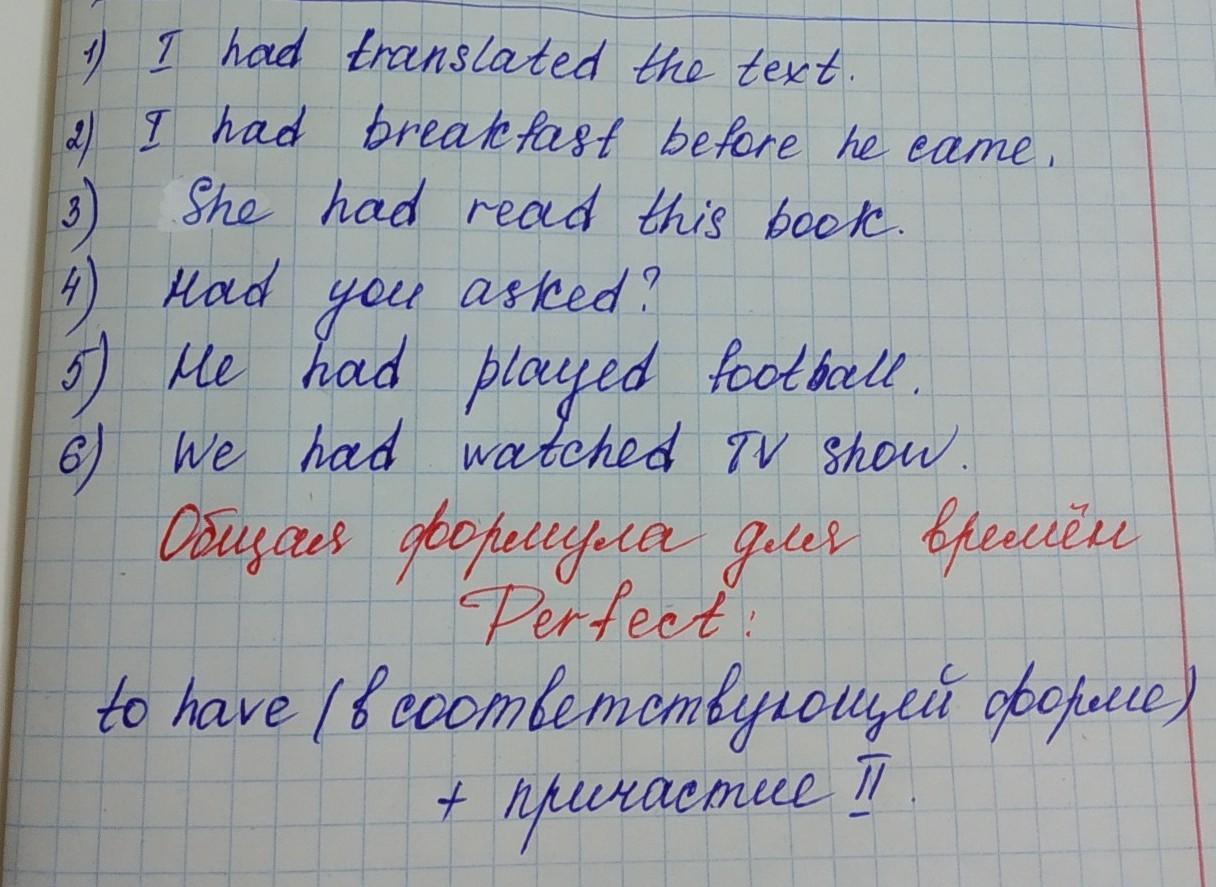 1) I had translated the text.
2) I had breakfast before he came.
3) She had read this book.
4) Had you asked?
5) He had played football.
6) We had watched TV show.
Общая формула для времён
Perfect:
to have (в соответствующей форме)
+ причастие II.